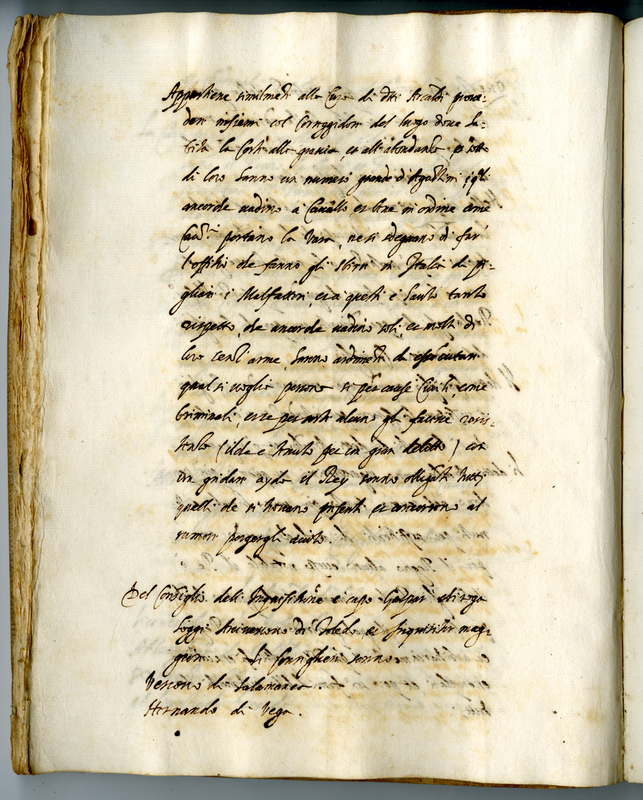 Appartiene similmẽti alla Cura di dti Arcaldi provi-
deri insiemi col Corregidor del luogo dove ha-
bita la Corte alla grascia, et all'abondanza, et sotto
di loro hanno un numero grande d'Aguzini, i qli
ancorche vadino a Cavallo et bene in ordine come
Cavri portano la Vara, ne si sdegnano di far'
l'offitio che fanno gli Sbirri in Italia di pi-
gliare i Malfattori, et a questi è havuto tanto
rispetto, che ancorche vadino soli, et molti di
loro senz'arme, hanno ardimẽto di essecutare
qual si voglia persona si per cause Civili, come
Criminali, et se per sorte alcuno gli facesse resis-
tenza (il che è tenuto per un gran delitto) con
un gridare ayda il Rey sono obligati tutti
quelli che si trovano presenti et concorrono al
rumore porgergli aiuto.
Del Consiglio dell'Inquisitiõne è capo Gaspar
Arcivescovo di Toledo et Inquisitor mag-
giore. Li Consiglieri sonno
Vescovo di Salamanca
Hernando di Vega.